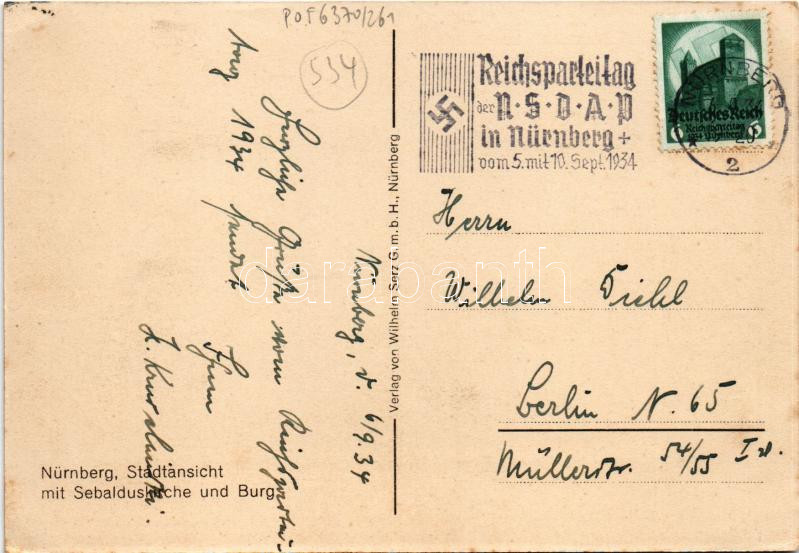 POF6370/261
534
Nürnberg, d. 6/9. 34
Herzliche Grüße vom Reichspartei-
tag 1934 sendet
Ihnen
Nürnberg, Stadtansicht
mit Sebalduskirche und Burg
Verlag von Wilhelm Serz G.m.b.H., Nürnberg
Reichsparteitag
der N·S·D·A·P
in Nürnberg +
vom 5. mit 10. Sept. 1934
NÜRNBERG
2
Deutsches Reich
Reichsparteitag
1934 Nürnberg
6 6
Herrn
Wilhelm Diehl
Berlin N. 65
Müllerstr. 54/55 I
darabanth